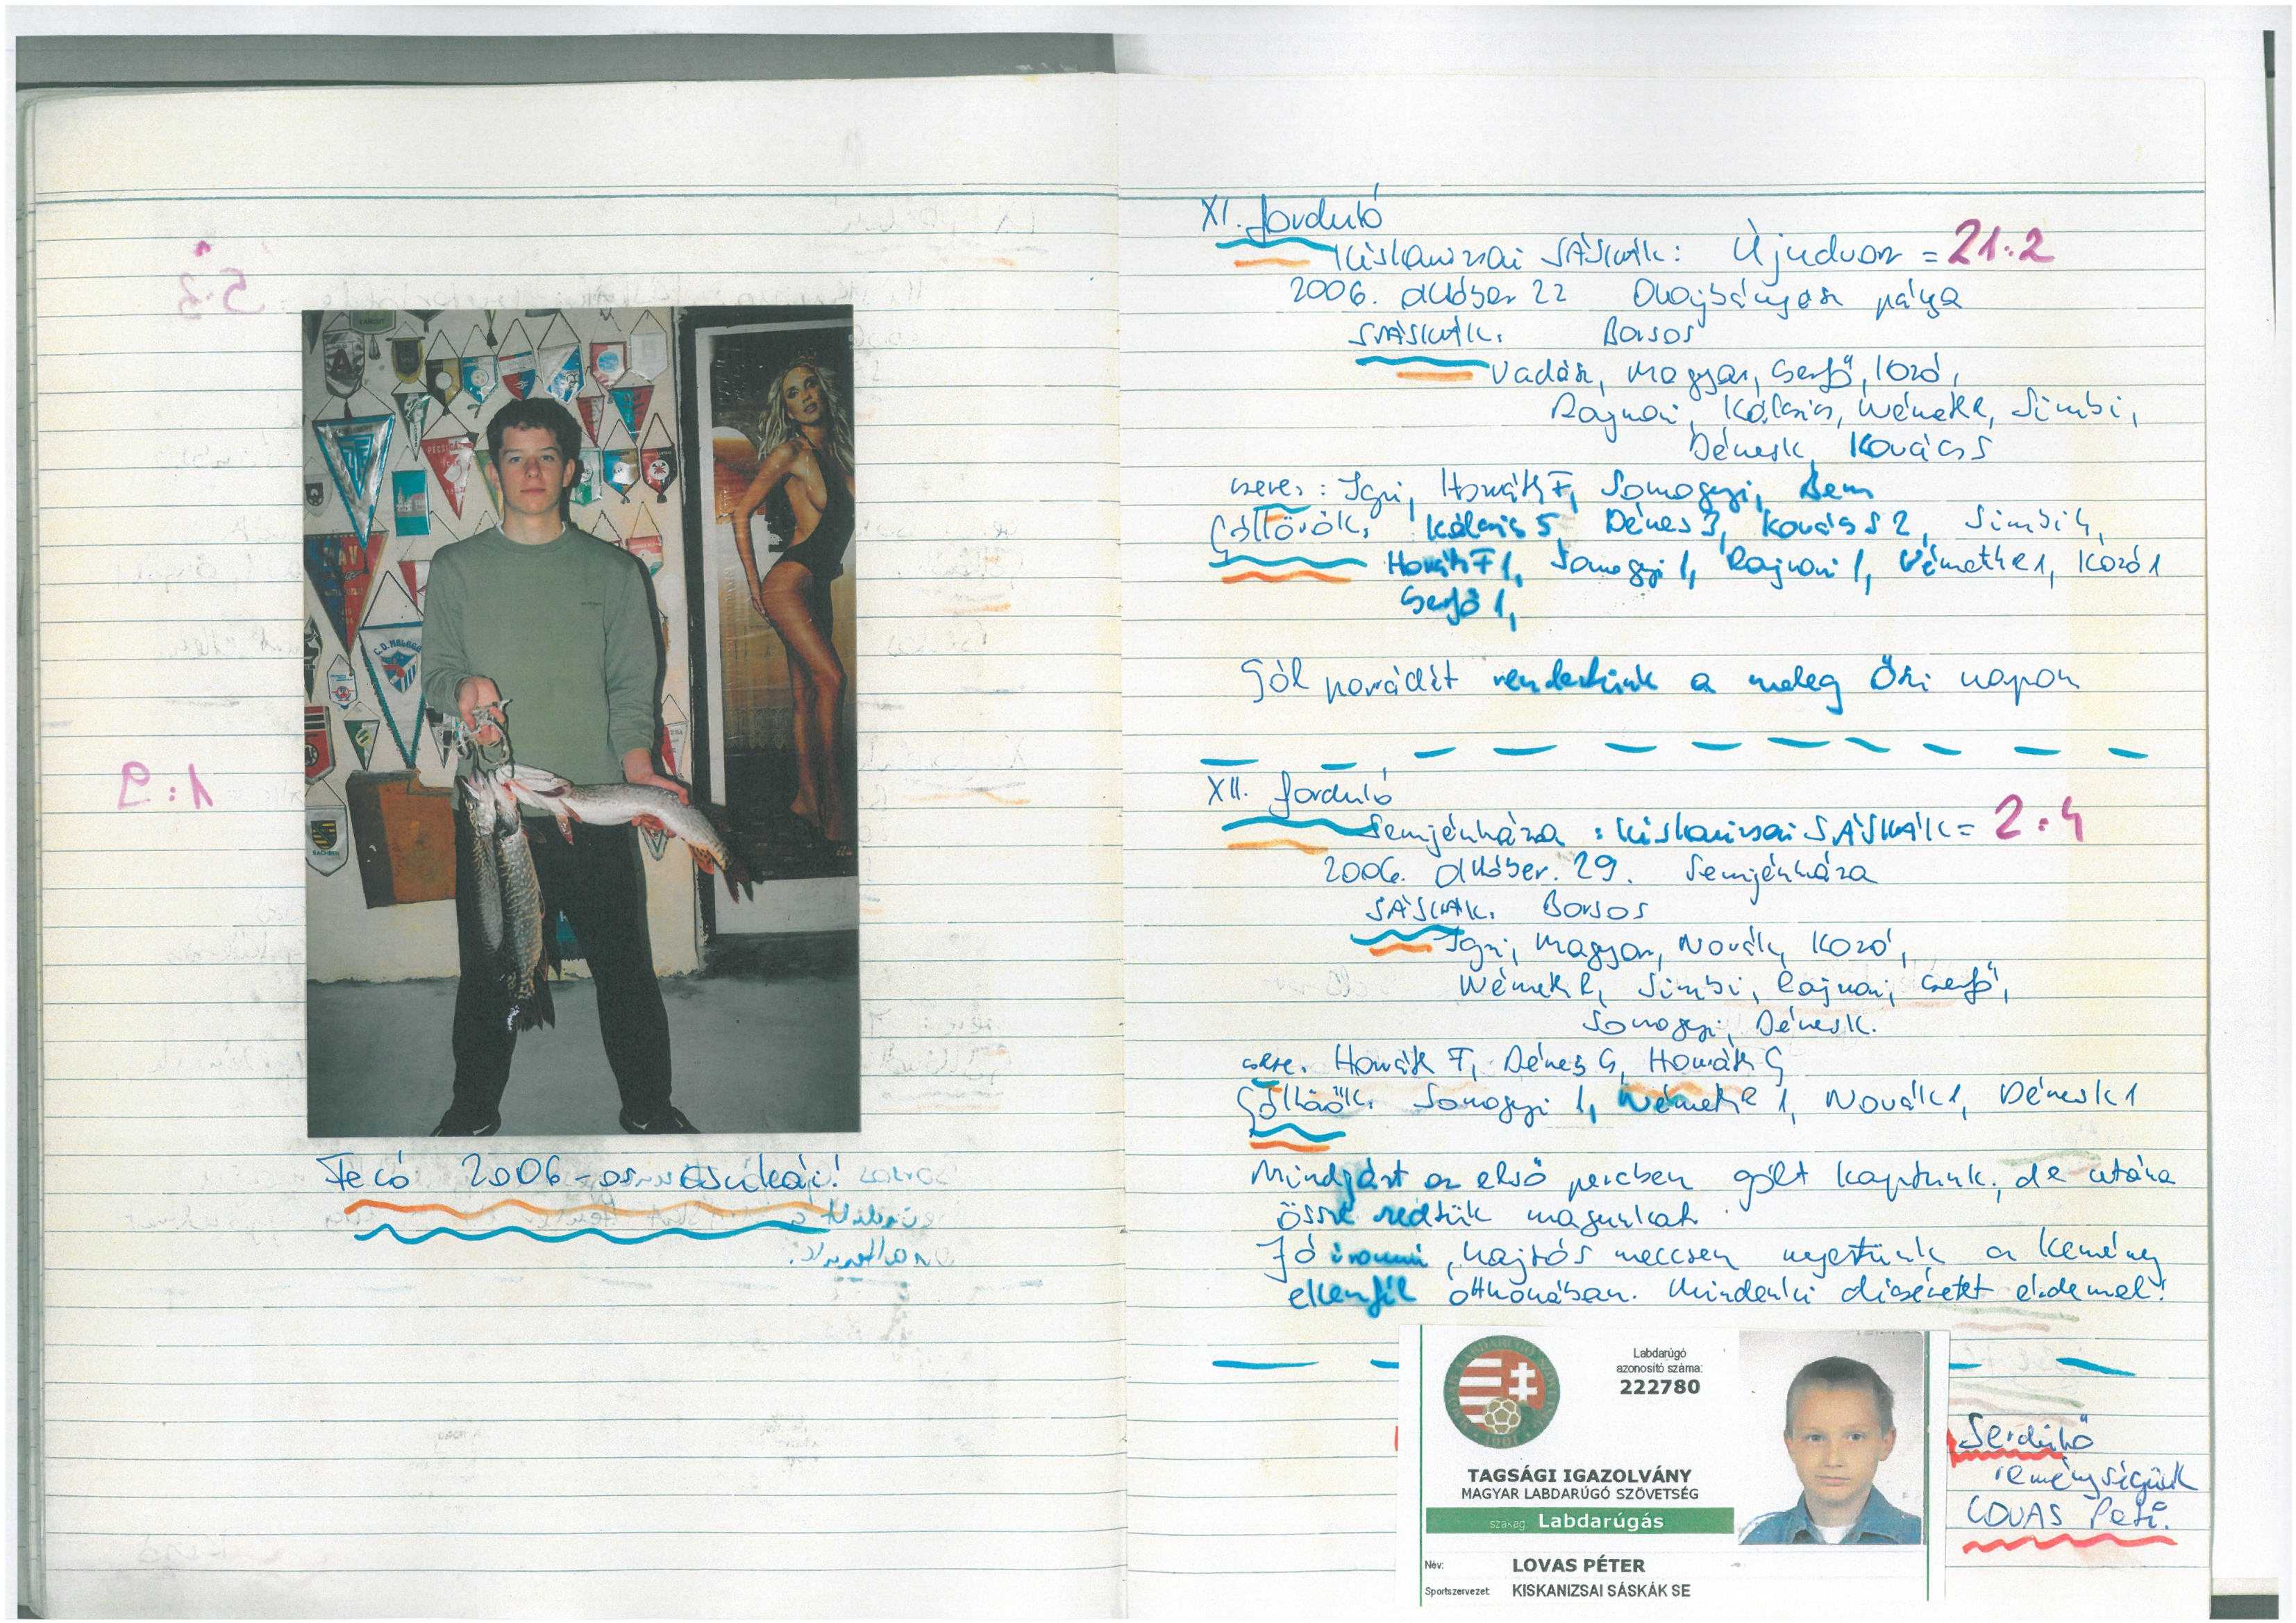 C.D. MALAGA
SACHSEN
Fecó 2006-os csukái!
XI. forduló
Kiskanizsai SÁSKÁK: Újudvar = 21:2
2006. október 22 Olajbányász pálya
SÁSKÁK. Borsos
Vadász, Magyar, Cserfő, Kozó,
Rajnai, Kálcsics, Németh R, Simbi,
Dénes K, Kovács S
csere: Igri, Horváth F, Somogyi, Bem
Góllövők. Kálcsics 5, Dénes 3, Kovács S 2, Simbi 4,
Horváth F 1, Somogyi 1, Rajnai 1, Németh R 1, Kozó 1
Cserfő 1,
Gól parádét rendeztünk a meleg őszi napon
XII. forduló
Semjénháza : Kiskanizsai SÁSKÁK = 2:4
2006. október. 29. Semjénháza
SÁSKÁK. Borsos
Igri, Magyar, Novák, Kozó,
Németh R, Simbi, Rajnai, Cserfő,
Somogyi, Dénes K.
csere. Horváth F, Dénes G, Horváth G
Góllövők. Somogyi 1, Németh R 1, Novák 1, Dénes K 1
Mindjárt az első percben gólt kaptunk, de utána
össze szedtük magunkat.
Jó iramú, hajtós meccsen nyertünk a kemény
ellenfél otthonában. Mindenki dicséretet érdemel!
Labdarúgó
azonosító száma:
222780
TAGSÁGI IGAZOLVÁNY
MAGYAR LABDARÚGÓ SZÖVETSÉG
szakág Labdarúgás
Név: LOVAS PÉTER
Sportszervezet: KISKANIZSAI SÁSKÁK SE
Serdülő
reménységünk
LOVAS Peti.